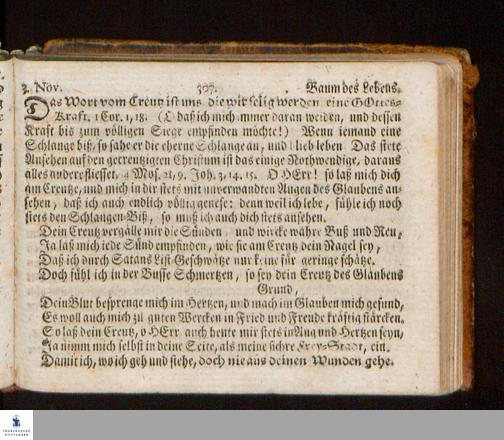 2. Nov. 307. Baum des Lebens.
Das Wort vom Creutz ist uns, die wir selig werden, eine GOttes-
Kraft. 1 Cor. 1, 18. (O daß ich mich immer daran weiden, und dessen
Kraft bis zum völligen Siege empfinden möchte!) Wenn iemand eine
Schlange biß, so sahe er die eherne Schlange an, und blieb leben. Das stete
Ansehen auf den gecreutzigten Christum ist das einige Nothwendige, daraus
alles andere fliesset. 4 Mos. 21, 9. Joh. 3, 14. 15. O HErr! so laß mich dich
am Creutze, und mich in dir stets mit unverwandten Augen des Glaubens an-
sehen, daß ich auch endlich völlig genese: denn weil ich lebe, fühle ich noch
stets den Schlangen-Biß, so muß ich auch dich stets ansehen.
Dein Creutz vergälle mir die Sünden, und wircke wahre Buß und Reu,
Ja laß mich iede Sünd empfinden, wie sie am Creutz dein Nagel sey,
Daß ich durch Satans List-Geschwätze nur keine für geringe schätze.
Doch fühl ich in der Busse Schmertzen, so sey dein Creutz des Glaubens
Grund,
Dein Blut besprenge mich im Hertzen, und mach im Glauben mich gesund,
Es woll auch mich zu guten Wercken in Fried und Freude kräftig stärcken.
So laß dein Creutz, o HErr, auch heute mir stets in Aug und Hertzen seyn,
Ja nimm mich selbst in deine Seite, als meine sichre Frey-Stadt, ein,
Damit ich, wo ich geh und stehe, doch nie aus deinen Wunden gehe.
FRANCKESCHE
STIFTUNGEN